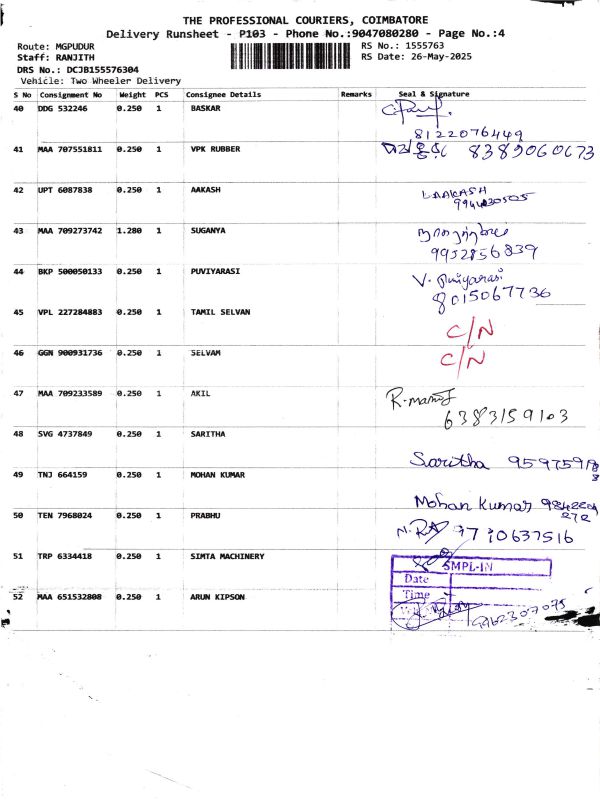 THE PROFESSIONAL COURIERS, COIMBATORE
Delivery Runsheet - P103 - Phone No.:9047080280 - Page No.:4
Route: MGPUDUR RS No.: 1555763
Staff: RANJITH RS Date: 26-May-2025
DRS No.: DCJB155576304
Vehicle: Two Wheeler Delivery
S No Consignment No Weight PCS Consignee Details Remarks Seal & Signature
40 DDG 532246 0.250 1 BASKAR
8122076449
41 MAA 707551811 0.250 1 VPK RUBBER 8389060673
42 UPT 6087838 0.250 1 AAKASH
43 MAA 709273742 1.280 1 SUGANYA
9952856839
44 BKP 500050133 0.250 1 PUVIYARASI V. Puviyarasi
8015067736
45 VPL 227284883 0.250 1 TAMIL SELVAN C/N
46 GGN 900931736 0.250 1 SELVAM C/N
47 MAA 709233589 0.250 1 AKIL
6383159103
48 SVG 4737849 0.250 1 SARITHA
Saritha
49 TNJ 664159 0.250 1 MOHAN KUMAR
Mohan Kumar
50 TEN 7968024 0.250 1 PRABHU
7710637516
51 TRP 6334418 0.250 1 SIMTA MACHINERY
SMPL-IN
Date
Time
52 MAA 651532808 0.250 1 ARUN KIPSON
9962307075